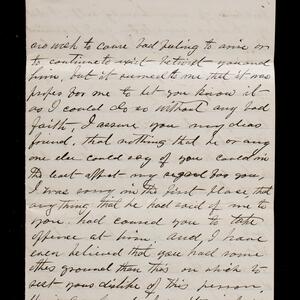 no wish to cause bad feeling to arise or
to continue to exist between you and
him, but it seemed to me that it was
proper for me to let you know it
as I could do so without any bad
faith, I assure you my dear
friend, that nothing that he or any
one else could say of you could in
the least affect my regard for you,
I was sorry in the first place, that
anything that he had said of me to
you had caused you to take
offence at him. And, I have
even believed that you had some
other ground than this on which to
rest your dislike of this person.